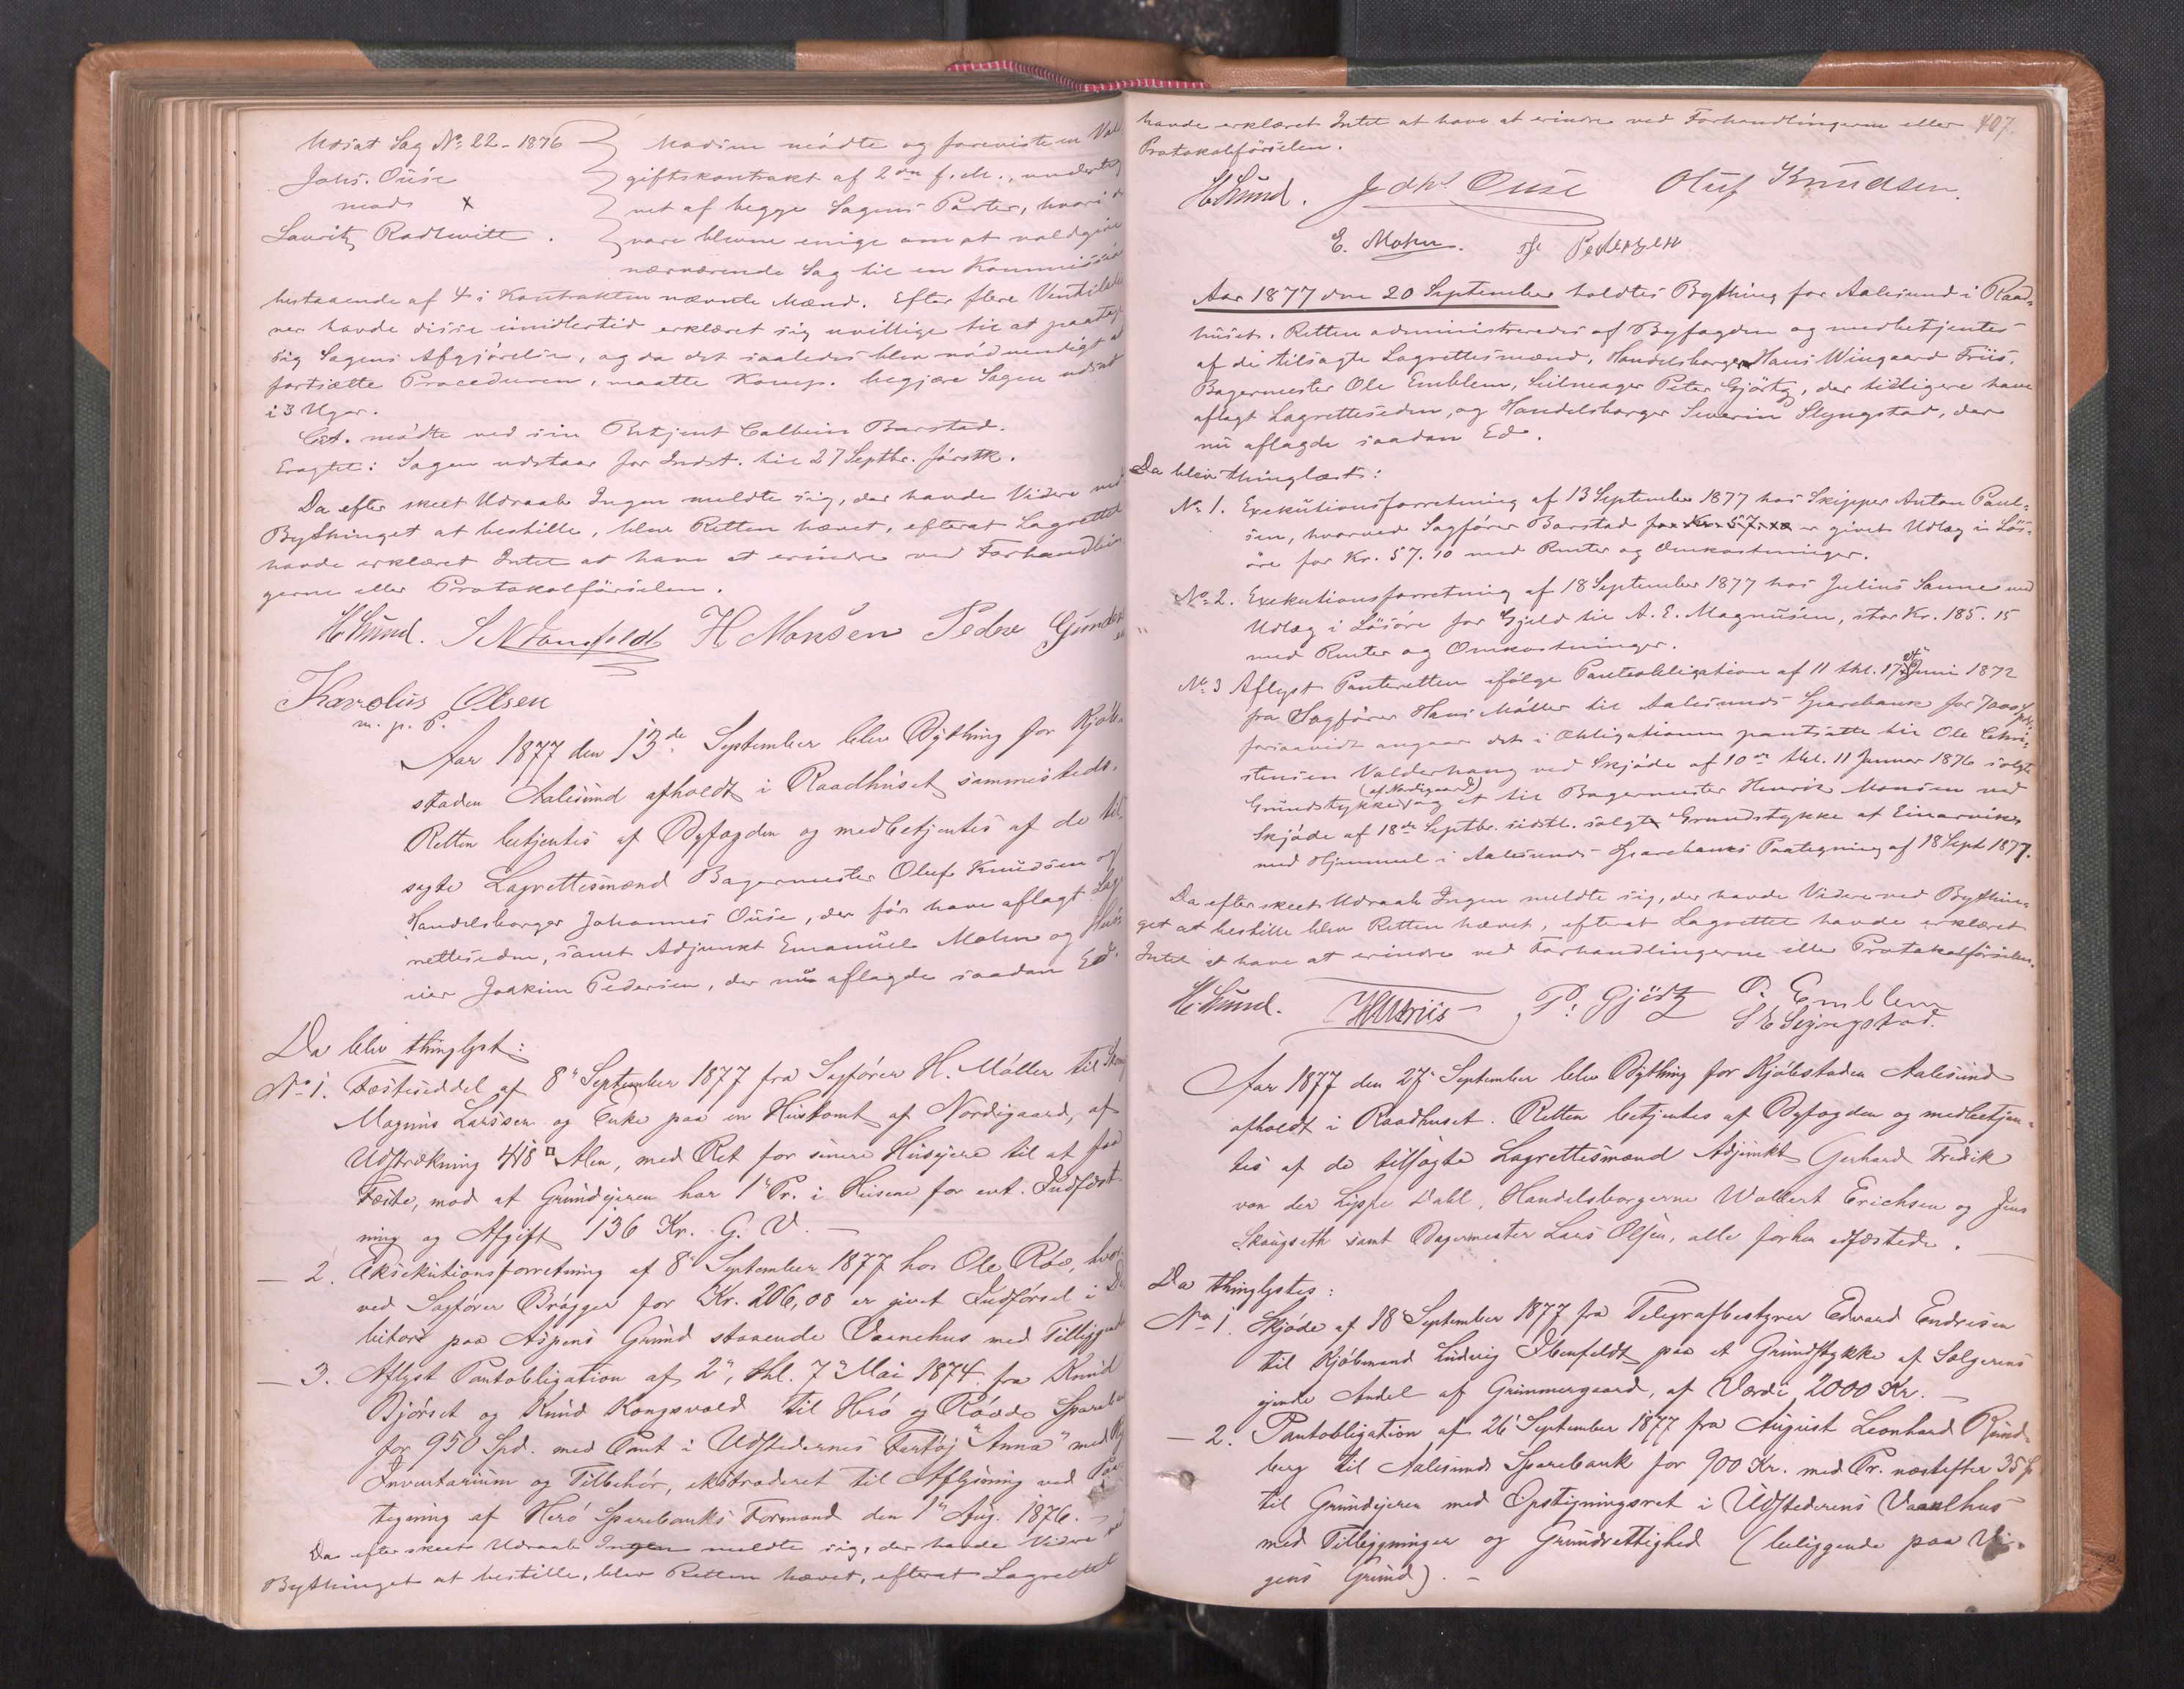 Udsat Sag No. 22-1876
Johs. Ouse
mod
Lauritz Radlwitt.
Madsen mödte og foreviste en Vold
giftskontrakt af 2den f. M., underteg
net af begge Sagens Parter, hvori d
vare blevne enige om at voldgive
nærværende Sag til en Kommissio
bestaaende af 4 i Kontrakten nævnte Mænd. Efter flere Ventilatio
ner havde disse imidlertid erklæret sig uvillige til at paatage
sig Sagens Afgjörelse, og da det saaledes blev nödvendigt at
fortsætte Proceduren, maatte Komp. begjære Sagen udsat
i 3 Uger.
Cit. mödte ved sin Betjent Barstad.
Eragtet: Sagen udstaar for Indst. til 27 Septbr. förstk.
Da efter skeet Udraab Ingen meldte sig, der havde Videre ved
Bythinget at bestille, blev Retten hævet, efterat Lagrettet
havde erklæret Intet at have at erindre ved Forhandlin
gerne eller Protokolförselen.
H Lund. H Monsen Peder Gunders
Karolius Olsen
m. p. P.
Aar 1877 den 13de September blev Bything for Kjöb-
staden Aalesund afholdt i Raadhuset sammesteds.
Retten betjentes af Byfogden og medbetjentes af de til
sagte Lagrettesmænd Bagermester Oluf Knudsen og
Handelsborger Johannes Ouse, der för have aflagt Lag
retteseden, samt Adjunkt Emanuel Mohn og Hus
eier Joakim Pedersen, der nu aflagde saadan Ed.
Da blev thinglyst:
No 1. Fæsteseddel af 8de September 1877 fra Sagförer H. Möller til
Magnus Larssen og Enke paa en Hustomt af Nordigaard, af
Udstrækning 418 □ Alen, med Ret for senere Huseiere til at faa
Fæste, mod at Grundeieren har 1ste Pr. i Husene for evt. Indfæst
ning og Afgift 136 Kr. G. V. —
— 2. Eksekutionsforretning af 8de September 1877 hos Ole Röv, hvor
ved Sagförer Brögger for Kr. 206,08 er givet Indförsel i De
bitors paa Aspens Grund staaende Vaanehus med Tilliggende
— 3. Aflyst Pantobligation af 2den, thl. 7de Mai 1874 fra Knud
Björset og Knud Kongsvold til Herö og Rövde Spareban
for 950 Spd. med Pant i Udstedernes Fartöj "Anna" med
Inventarium og Tilbehör, ekstraderet til Aflysning ved Paa
tegning af Herö Sparebanks Formand den 1ste Aug. 1876. —
Da efter skeet Udraab Ingen meldte sig, der havde Videre ved
Bythinget at bestille, blev Retten hævet, efterat Lagrettet
407.
havde erklæret Intet at have at erindre ved Forhandlingerne eller
Protokolförselen.
H Lund. Johs Ouse Oluf Knudsen.
E. Mohn. Pedersen
Aar 1877 den 20 September holdtes Bything for Aalesund i Raad-
huset. Retten administreredes af Byfogden og medbetjentes
af de tilsagte Lagrettesmænd, Handelsborger Hans Wingaard Friis,
Bagermester Ole Emblem, Seilmager Peter Gjörtz, der tidligere have
aflagt Lagretteseden, og Handelsborger Severin Slyngstad, der
nu aflagde saadan Ed.
Da blev thinglæst:
No 1. Exekutionsforretning af 13 September 1877 hos Skipper Anton Paul-
sen, hvorved Sagförer Barstad for Kr. 57.10 er givet Udlæg i Lös-
öre for Kr. 57.10 med Renter og Omkostninger.
No 2. Exekutionsforretning af 18 September 1877 hos Julius Sanne med
Udlæg i Lösöre for Gjeld til A. E. Magnusen, stor Kr. 185.15
med Renter og Omkostninger.
No 3 Aflyst Panteretten ifölge Panteobligation af 11 thl. 17 Juni 1872
fra Sagförer Hans Möller til Aalesunds Sparebank for 7000 Spd,
forsaavidt angaar det i Obligationen pantsatte til Ole Chri-
stensen Valderhaug ved Skjöde af 10de thl. 11 Januar 1876 solgte
Grundstykke (af Nordigaard) og et til Bagermester Henrik Monsen ved
Skjöde af 18de Septbr. sidstl. solgte Grundstykke af Einarviken
med Hjemmel i Aalesunds Sparebanks Paategning af 18 Sept 1877.
Da efter skeet Udraab Ingen meldte sig, der havde Videre ved Bythin-
get at bestille blev Retten hævet, efterat Lagrettet havde erklæret
Intet at have at erindre ved Forhandlingerne eller Protokolförselen.
H. Lund. HWFriis P. Gjörtz O. Emblem
S E Slyngstad.
Aar 1877 den 27de September blev Bything for Kjöbstaden Aalesund
afholdt i Raadhuset. Retten betjentes af Byfogden og medbetjen-
tes af de tilsagte Lagrettesmænd Adjunkt Gerhard Fredrik
von der Lippe Dahl, Handelsborgerne Wollert Erichsen og Jens
Skougseth samt Bagermester Lars Olsen, alle forhen edfæstede. —
Da thinglystes:
No 1. Skjöde af 18de September 1877 fra Telegrafbestyrer Edward Endresen
til Kjöbmand Ludvig Ibenfeldt paa et Grundstykke af Sælgerens
eiende Andel af Grimmergaard, af Værdi 2000 Kr. —
— 2. Pantobligation af 26de September 1877 fra August Leonhard Rund-
berg til Aalesunds Sparebank for 900 Kr. med Pr. næstefter 35
til Grundeieren med Opstigningsret i Udstederens Vaanehus
med Tilbygninger og Grundrettighed (beliggende paa Vi-
gens Grund). —